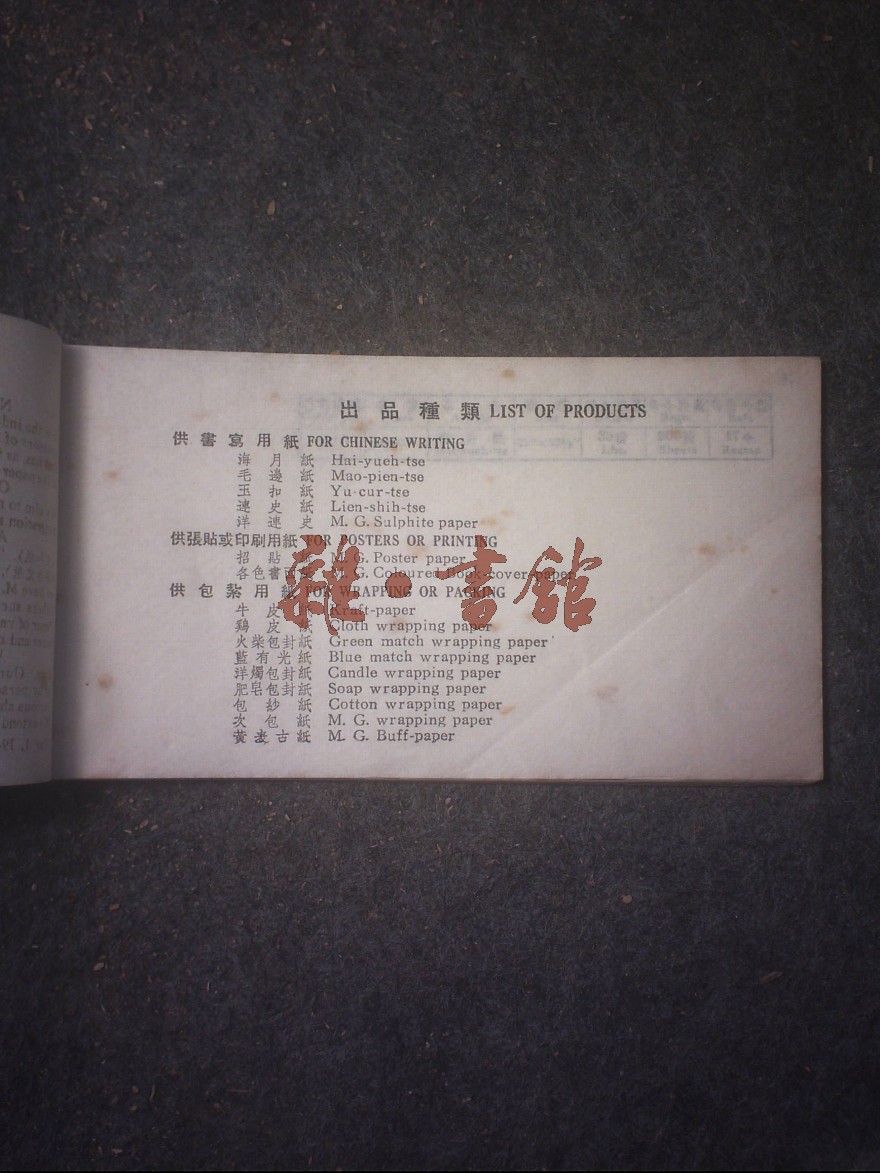 出品種類 LIST OF PRODUCTS
供書寫用紙 FOR CHINESE WRITING
海月紙 Hai-yueh-tse
毛邊紙 Mao-pien-tse
玉扣紙 Yu-cur-tse
連史紙 Lien-shih-tse
洋連史 M. G. Sulphite paper
供張貼或印刷用紙 FOR POSTERS OR PRINTING
招貼紙 M. G. Poster paper
各色書面紙 M. G. Coloured Book-cover paper
供包紮用紙 FOR WRAPPING OR PACKING
牛皮紙 Kraft-paper
鷄皮紙 Cloth wrapping paper
火柴包封紙 Green match wrapping paper
藍有光紙 Blue match wrapping paper
洋燭包封紙 Candle wrapping paper
肥皂包封紙 Soap wrapping paper
包紗紙 Cotton wrapping paper
次包紙 M. G. wrapping paper
黃表古紙 M. G. Buff-paper
雜·書館